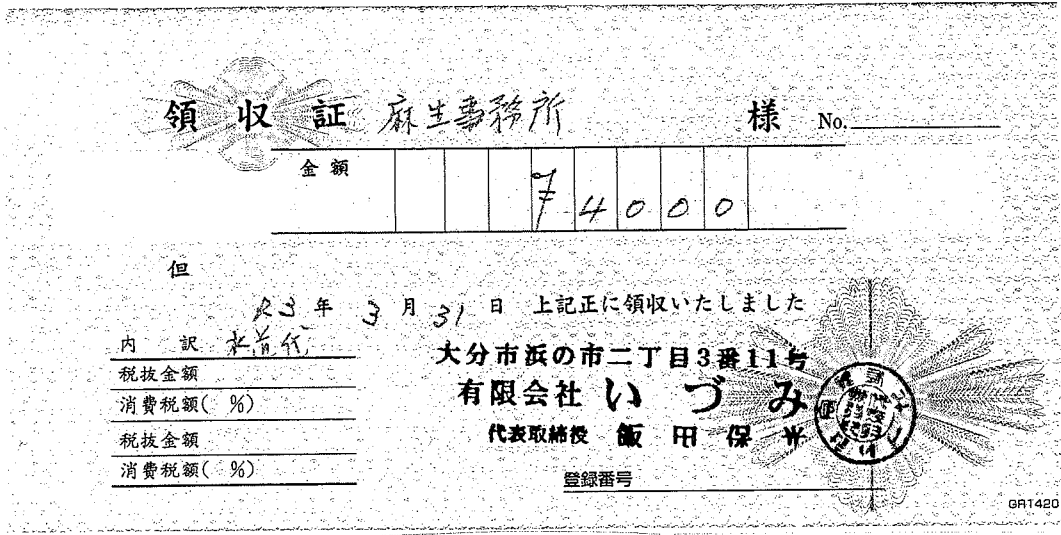 領収証 麻生事務所 様 No.
金額 ¥74000
但
R3年 3月 31日 上記正に領収いたしました
内訳
税抜金額
消費税額( %)
税抜金額
消費税額( %)
大分市浜の市二丁目3番11号
有限会社 いづみ
代表取締役 飯田保
登録番号
GR1420